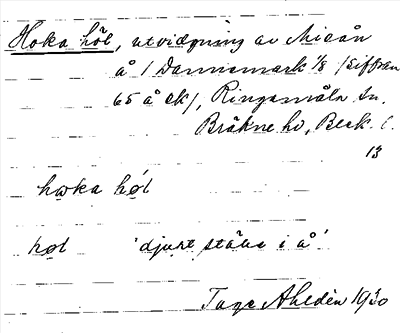 Hoka höl, utvidgning av Mieån
å / Dannemark 1/8 / siffran
65 å ek /, Ringamåla sn.
Bräkne hd, Blek. l.
13
hωka høl
høl 'djupt ställe i å'
Tage Ahldén 1930